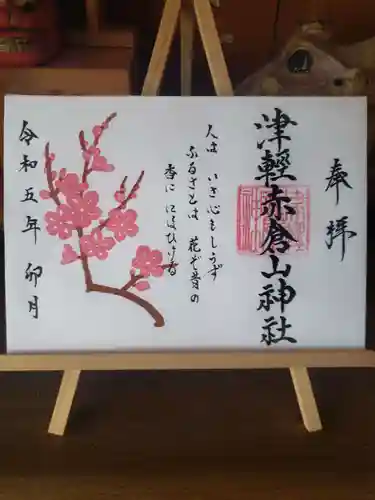 奉拝
津輕赤倉山神社
人は いさ心もしらず
ふるさとは 花ぞ昔の
香に にほひける
令和五年 卯月